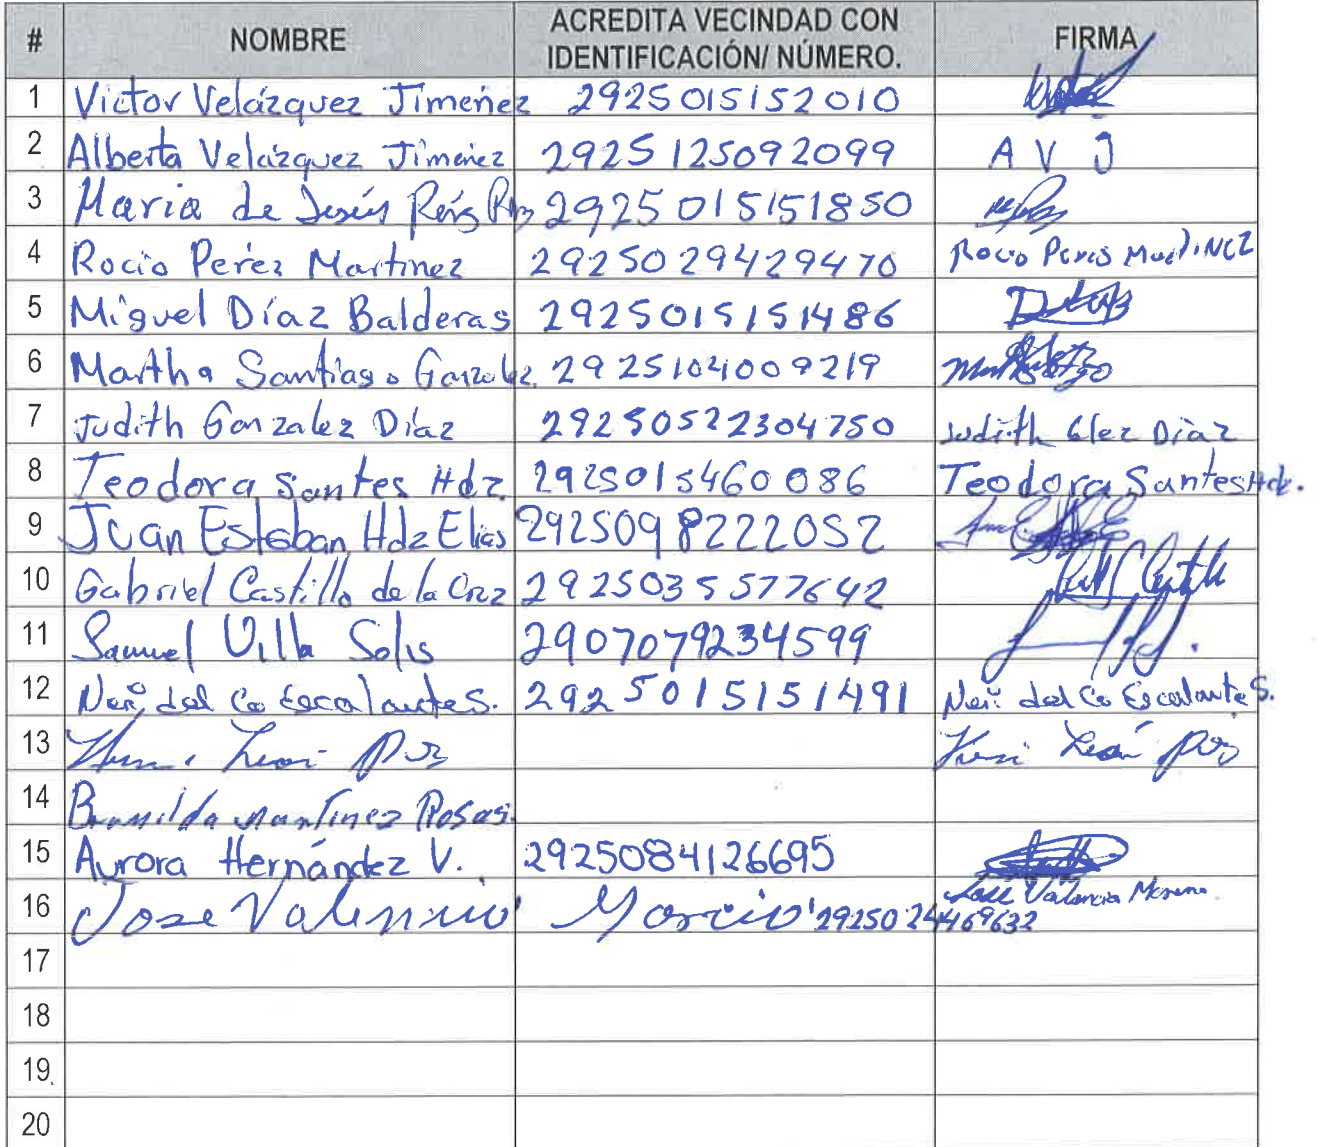 # NOMBRE ACREDITA VECINDAD CON IDENTIFICACIÓN/ NÚMERO. FIRMA
1 Victor Velázquez Jimenez 2925015152010
2 Alberta Velázquez Jimenez 2925125092099 A V J
3 Maria de Jesús 2925015151850
4 Rocio Perez Martinez 2925029429470 Rocio Peres MartiNez
5 Miguel Díaz Balderas 2925015151486
6 Martha Santiago Gonzalez 2925104009219
7 Judith Gonzalez Díaz 29250522304750 Judith Glez Díaz
8 Teodora Santes Hdz. 2925015460086 Teodora Santes Hdz.
9 Juan Esteban Hdz Elias 2925098222052
10 Gabriel Castillo de la Cruz 2925035577642
11 Samuel Villa Solis 2907079234599
12 del Co Escalante S. 2925015151491 del Co Escalante S.
13
14 Martinez Rosas.
15 Aurora Hernández V. 2925084126695
16 Jose 2925024469632 Jose Valencia Moreno
17
18
19
20